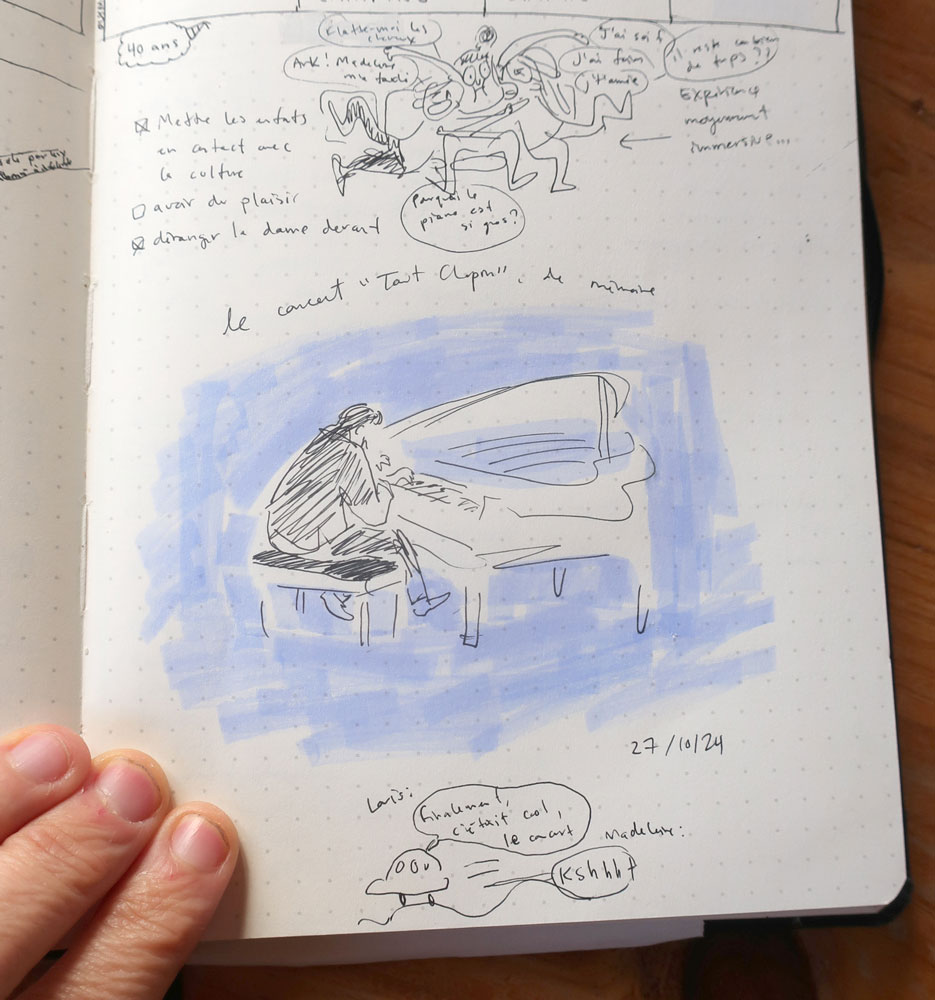 40 ans
Ark! Madeleine
J'ai soif
J'ai faim
il reste combien
de temps??
Expérience
moyennement
immersive...
☒ Mettre les enfants
en contact avec
la culture
☐ avoir du plaisir
☒ déranger la dame devant
Pourquoi le
piano est
si gros?
le concert "Tout Chopin", de mémoire
27/10/24
Finalement,
c'était cool,
le concert
Madeleine:
Kshhht